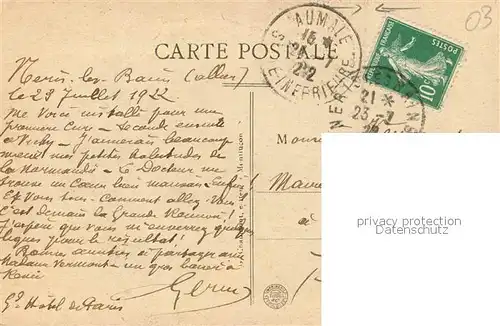 03
CARTE POSTALE
AUMALE
15 *
SEINE INFÉRIEURE
21 *
23-7
10c
Neris-les-Bains (allier)
le 23 Juillet 1922
Me voici installé pour une
première Cure - Seconde ensuite
à Vichy - J'aimerais beaucoup
mieux mes petites habitudes de
la Normandie - Le Docteur me
trouve un Cœur bien mauvais - Enfin!
Et vous tous - Comment allez-vous?
C'est demain la Grande Réunion!
J'espère que vous m'enverrez quelques
lignes pour le résultat!
Bonnes amitiés à partager avec
Madame Vermont - un gros baiser à
René
Gd Hôtel de Paris
Monsieur
Maire
à
privacy protection